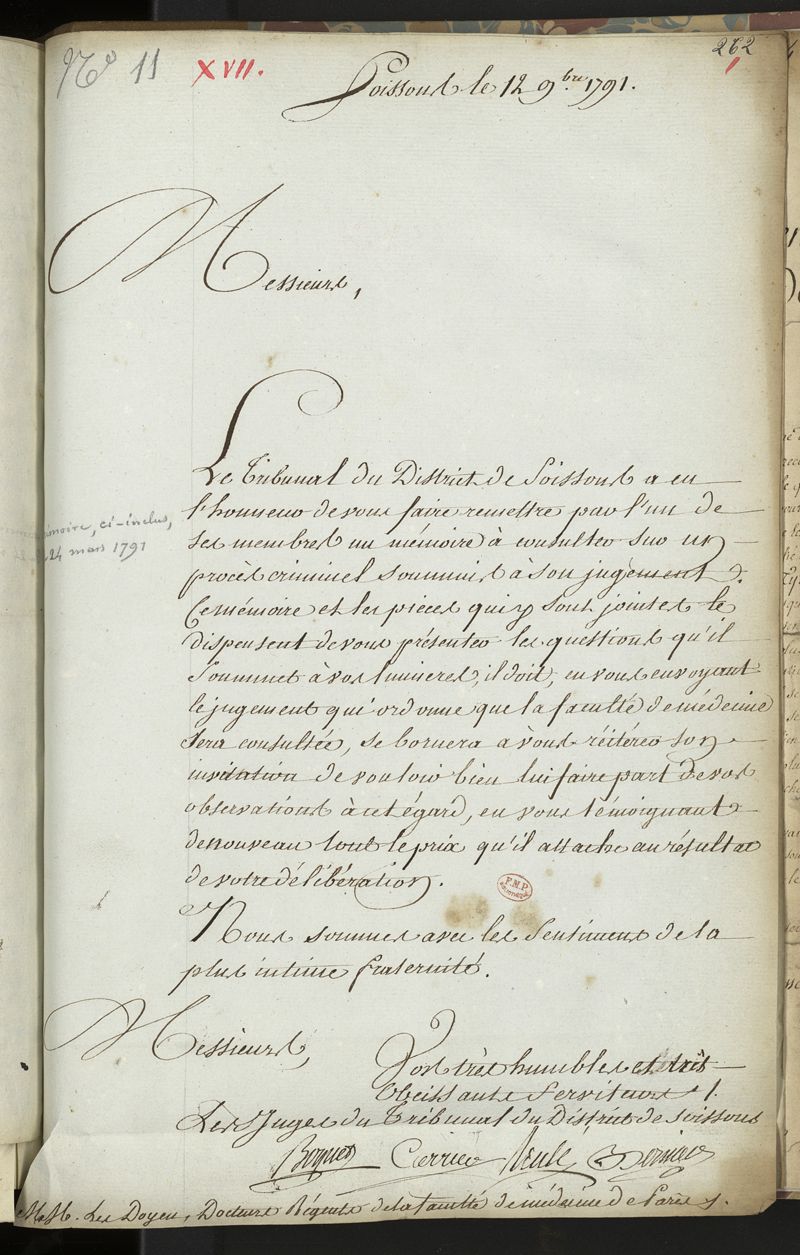 No 11
XVII.
262
1
Soissons le 12 9bre 1791.
Messieurs,
Le Tribunal du District de Soissons a eu
l'honneur de vous faire remettre par l'un de
ses membres un mémoire à consulter sur un
procès criminel soummis à son jugement.
Ce mémoire et les pieces qui y sont jointes le
dispensent de vous présenter les questions qu'il
soummet à vos lumieres, il doit, en vous envoyant
le jugement qui ordonne que la faculté de médecine
sera consultée, se bornera a vous réitérer son
invitation de vouloir bien lui faire part de vos
observations à cet égard, en vous témoignant
de nouveau tout le prix qu'il attache au résultat
de votre délibération.
mémoire, ci-inclus,
24 mars 1791
F.M.P.
Nous sommes avec les sentimens de la
plus intime fraternité.
Messieurs,
Vos très humbles et très
Obéissants Serviteurs
Les Juges du Tribunal du District de Soissons
Carrier
M.M. Les Doyen, Docteurs Régents de la faculté de médecine de Paris